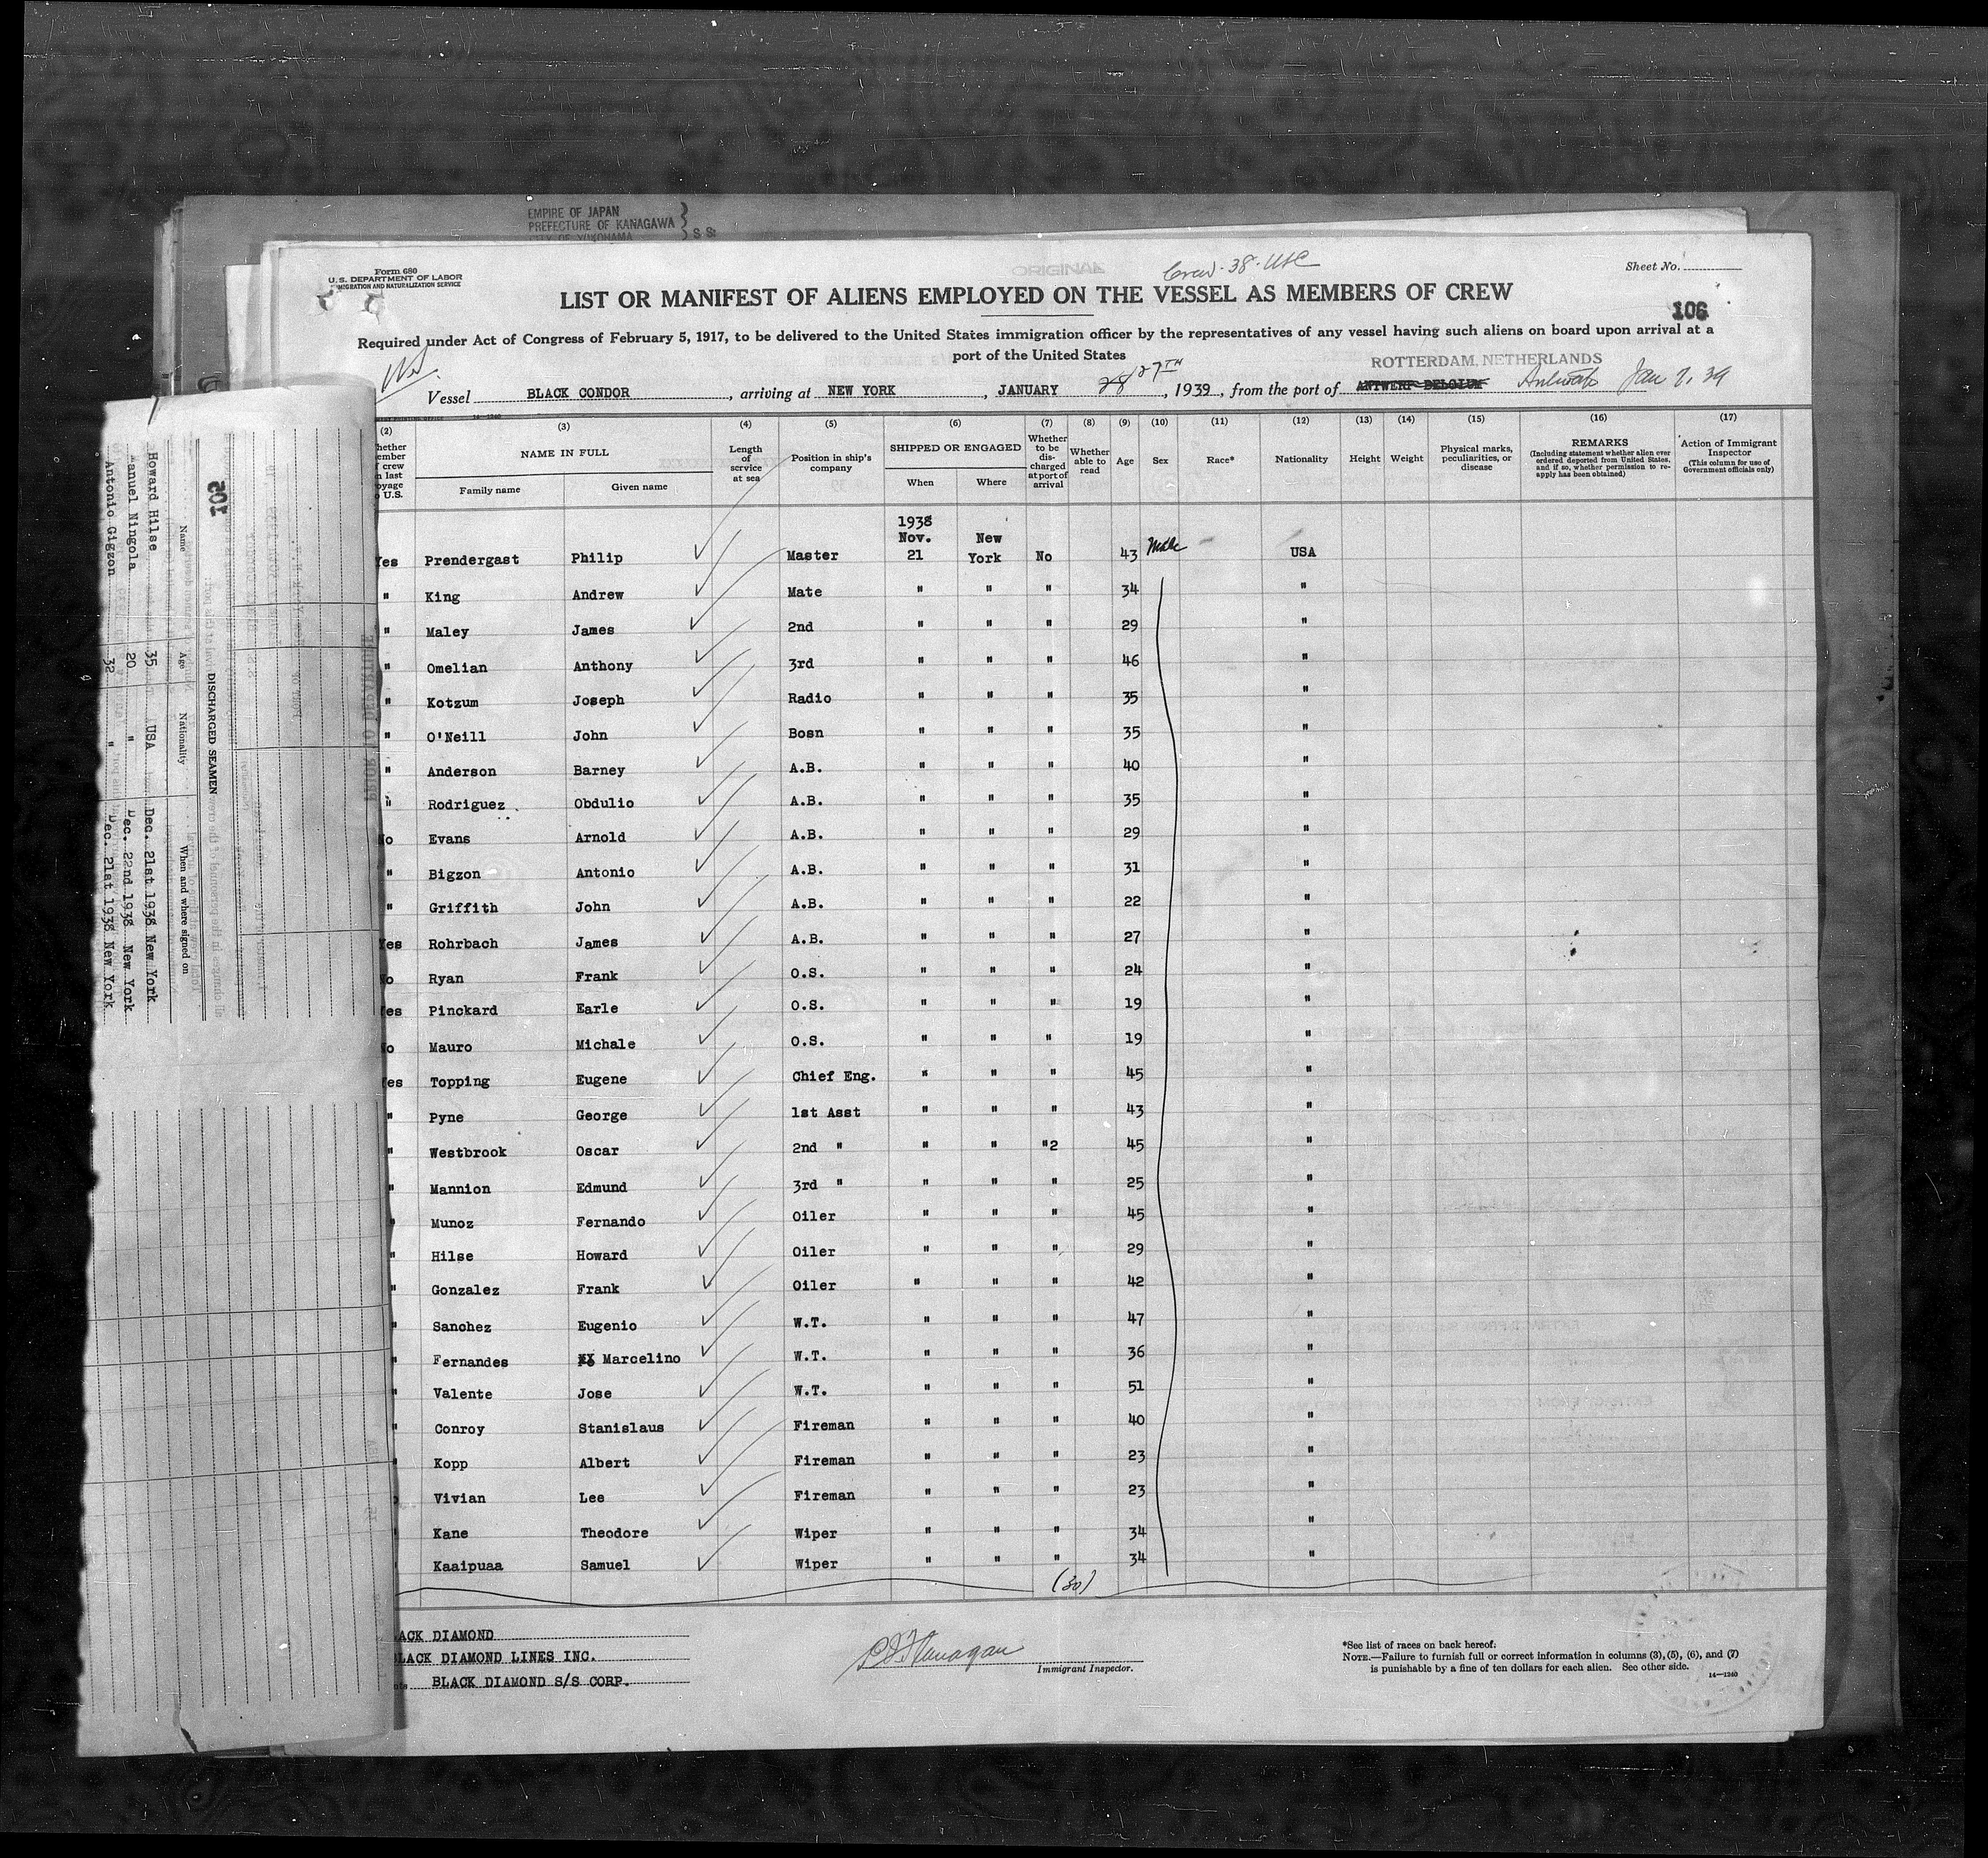 EMPIRE OF JAPAN
PREFECTURE OF KANAGAWA } S S:
CITY OF YOKOHAMA
Form 680
U.S. DEPARTMENT OF LABOR
IMMIGRATION AND NATURALIZATION SERVICE
ORIGINAL
Crew-38-USC
Sheet No.
LIST OR MANIFEST OF ALIENS EMPLOYED ON THE VESSEL AS MEMBERS OF CREW
106
Required under Act of Congress of February 5, 1917, to be delivered to the United States immigration officer by the representatives of any vessel having such aliens on board upon arrival at a
port of the United States
ROTTERDAM, NETHERLANDS
Vessel BLACK CONDOR, arriving at NEW YORK, JANUARY 28 27TH, 1939, from the port of ANTWERP BELGIUM Antwerp Jan 7, 39
14—1240
(2) (3) (4) (5) (6) (7) (8) (9) (10) (11) (12) (13) (14) (15) (16) (17)
hether ember f crew n last oyage o U.S.
NAME IN FULL
Family name Given name
Length of service at sea
Position in ship's company
SHIPPED OR ENGAGED
When Where
Whether to be discharged at port of arrival
Whether able to read
Age Sex Race* Nationality Height Weight
Physical marks, peculiarities, or disease
REMARKS
(Including statement whether alien ever ordered deported from United States, and if so, whether permission to re-apply has been obtained)
Action of Immigrant Inspector
(This column for use of Government officials only)
1938
Nov. New
Yes Prendergast Philip Master 21 York No 43 Male USA
" King Andrew Mate " " " 34 "
" Maley James 2nd " " " 29 "
" Omelian Anthony 3rd " " " 46 "
" Kotzum Joseph Radio " " " 35 "
" O'Neill John Bosn " " " 35 "
" Anderson Barney A.B. " " " 40 "
" Rodriguez Obdulio A.B. " " " 35 "
No Evans Arnold A.B. " " " 29 "
" Bigzon Antonio A.B. " " " 31 "
" Griffith John A.B. " " " 22 "
Yes Rohrbach James A.B. " " " 27 "
No Ryan Frank O.S. " " " 24 "
Yes Pinckard Earle O.S. " " " 19 "
No Mauro Michale O.S. " " " 19 "
Yes Topping Eugene Chief Eng. " " " 45 "
" Pyne George 1st Asst " " " 43 "
" Westbrook Oscar 2nd " " " "2 45 "
" Mannion Edmund 3rd " " " " 25 "
" Munoz Fernando Oiler " " " 45 "
" Hilse Howard Oiler " " " 29 "
" Gonzalez Frank Oiler " " " 42 "
" Sanchez Eugenio W.T. " " " 47 "
" Fernandes Marcelino W.T. " " " 36 "
" Valente Jose W.T. " " " 51 "
" Conroy Stanislaus Fireman " " " 40 "
" Kopp Albert Fireman " " " 23 "
o Vivian Lee Fireman " " " 23 "
" Kane Theodore Wiper " " " 34 "
" Kaaipuaa Samuel Wiper " " " 34 "
(30)
LACK DIAMOND
BLACK DIAMOND LINES INC.
BLACK DIAMOND S/S CORP.
Immigrant Inspector.
*See list of races on back hereof.
NOTE.—Failure to furnish full or correct information in columns (3), (5), (6), and (7)
is punishable by a fine of ten dollars for each alien. See other side.
14—1240
102
DISCHARGED SEAMEN
Name Age Nationality When and where signed on
Howard Hilse 35 USA Dec. 21st 1938 New York
Manuel Ningola 20 " Dec. 22nd 1938 New York
Antonio Gigzon 32 " Dec. 21st 1938 New York